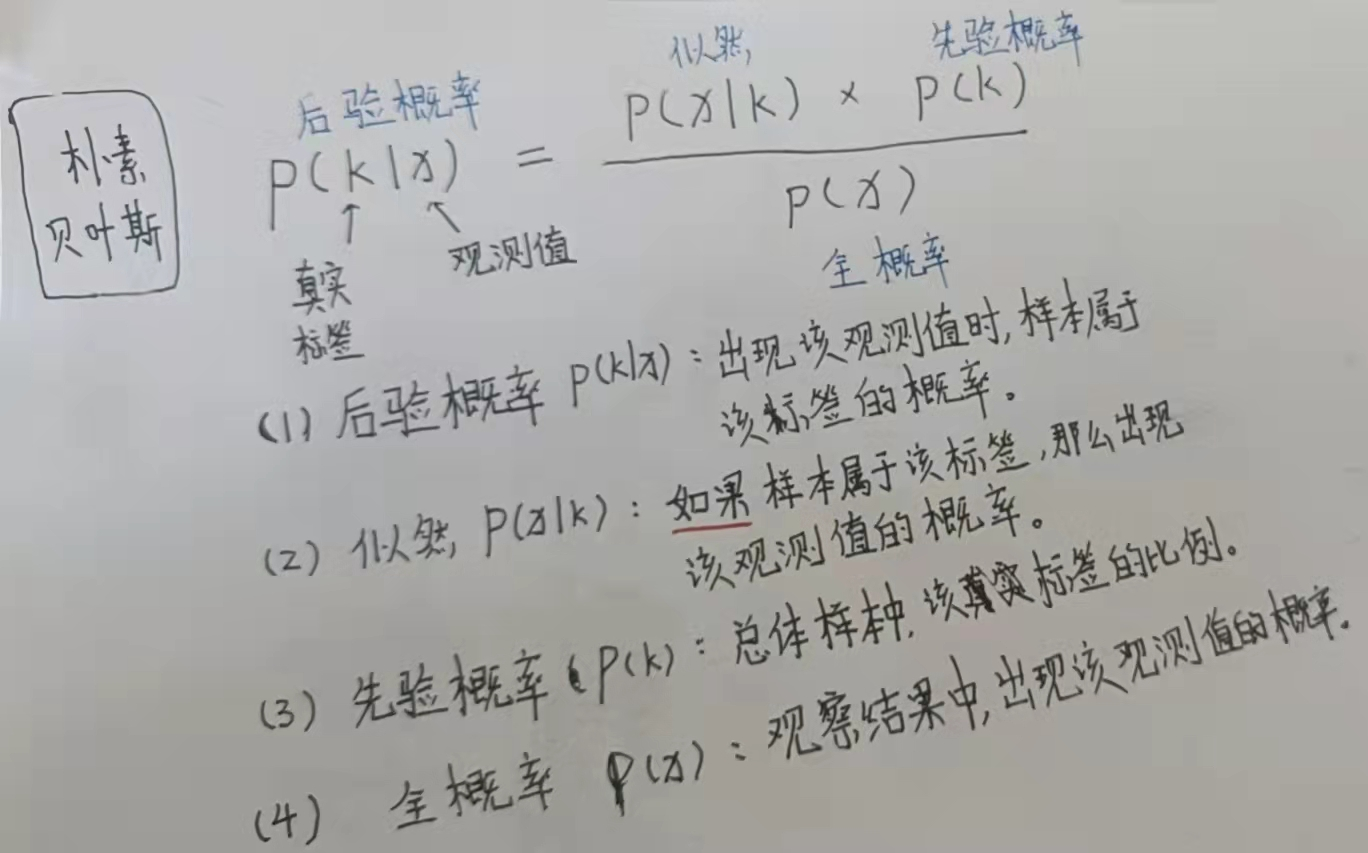 朴素
贝叶斯
似然 先验概率
后验概率
P(x|k) × P(k)
P(k|x) =
P(x)
全概率
真实
标签
观测值
(1) 后验概率 P(k|x)：出现该观测值时,样本属于
该标签的概率。
(2) 似然 P(x|k)：如果样本属于该标签,那么出现
该观测值的概率。
(3) 先验概率 P(k)：总体样本中,该真实标签的比例。
(4) 全概率 P(x)：观察结果中,出现该观测值的概率。